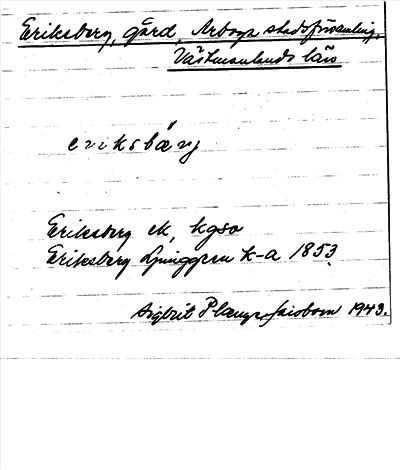 Eriksberg, gård, Arboga stadsförsamling,
Västmanlands län
eriksbærj
Eriksberg ek, kgso
Eriksberg Ljunggren k-a 1853
Sigbrit Plænge Jacobson 1943.